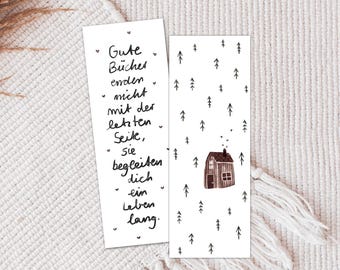 Gute
Bücher
enden
nicht
mit der
letzten
Seite,
sie
begleiten
dich
ein
Leben
lang.